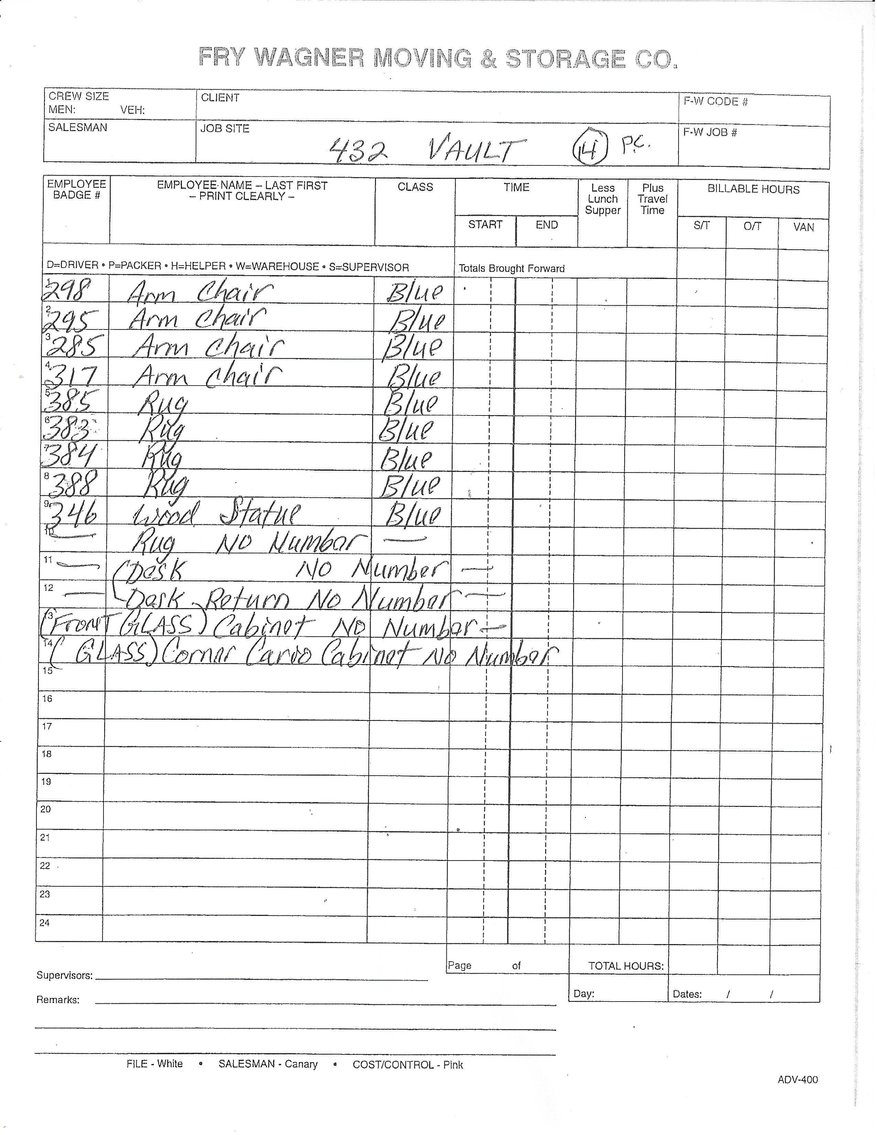 FRY WAGNER MOVING & STORAGE CO.
CREW SIZE
MEN: VEH:
CLIENT
F-W CODE #
SALESMAN
JOB SITE
432 VAULT 14 P.C.
F-W JOB #
EMPLOYEE BADGE #
EMPLOYEE NAME – LAST FIRST
– PRINT CLEARLY –
CLASS
TIME
START END
Less Lunch Supper
Plus Travel Time
BILLABLE HOURS
S/T O/T VAN
D=DRIVER • P=PACKER • H=HELPER • W=WAREHOUSE • S=SUPERVISOR
Totals Brought Forward
1 298 Arm Chair Blue
2 295 Arm Chair Blue
3 285 Arm Chair Blue
4 317 Arm Chair Blue
5 385 Rug Blue
6 383 Rug Blue
7 384 Rug Blue
8 388 Rug Blue
9 346 Wood Statue Blue
10 — Rug No Number —
11 — (Desk No Number —
12 — Desk Return No Number —
13 (FRONT GLASS) Cabinet No Number —
14 (GLASS) Corner Curio Cabinet No Number
15
16
17
18
19
20
21
22
23
24
Page of
TOTAL HOURS:
Supervisors:
Day:
Dates: / /
Remarks:
FILE - White • SALESMAN - Canary • COST/CONTROL - Pink
ADV-400